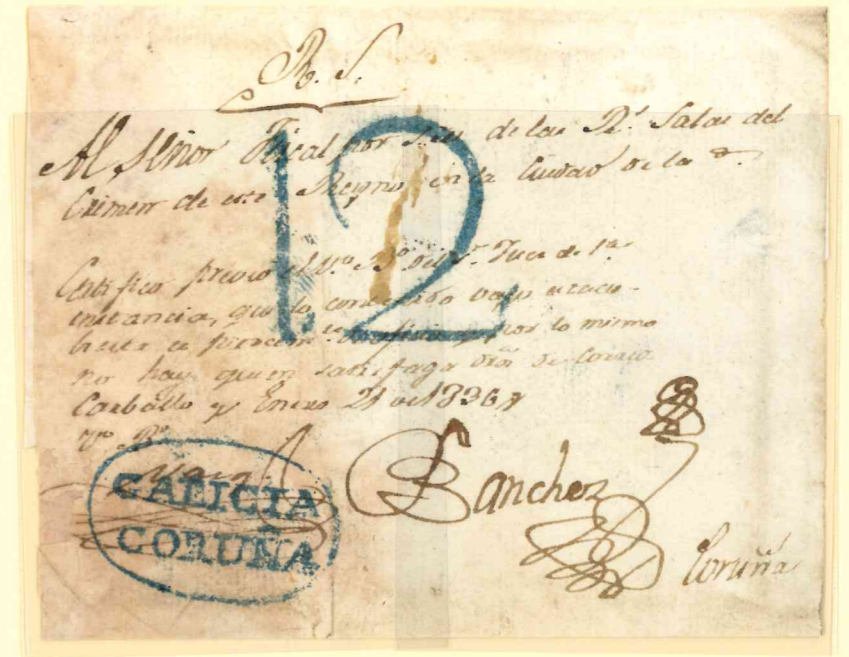 R. S.
Al Señor Fiscal por S.M. de las Rs. Salas del
Crimen de este Reyno en la Ciudad de la
12
Certifico previo el Vo. Bo. del Sr. Juez de 1a.
instancia, que lo contenido bajo
de oficio y por lo mismo
no hay quien satisfaga dros. de Correo
Carballo y Enero 21 de 1836
Vo. Bo.
Sanchez
GALICIA
CORUÑA
Coruña